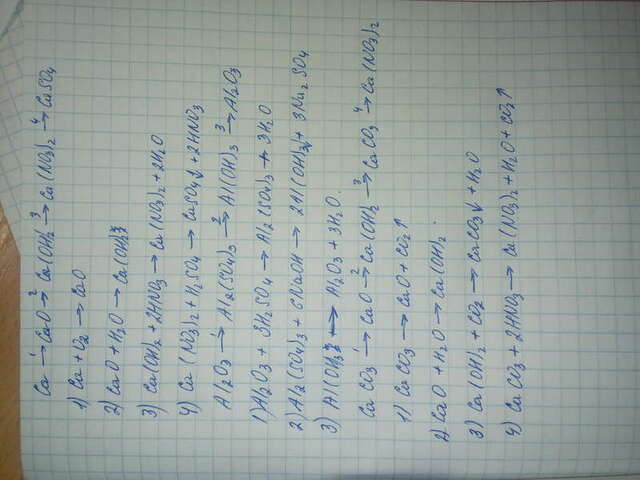 Ca →¹ CaO →² Ca(OH)₂ →³ Ca(NO₃)₂ →⁴ CaSO₄
1) Ca + O₂ → CaO
2) CaO + H₂O → Ca(OH)₂
3) Ca(OH)₂ + 2HNO₃ → Ca(NO₃)₂ + 2H₂O
4) Ca(NO₃)₂ + H₂SO₄ → CaSO₄↓ + 2HNO₃
Al₂O₃ →¹ Al₂(SO₄)₃ →² Al(OH)₃ →³ Al₂O₃
1) Al₂O₃ + 3H₂SO₄ → Al₂(SO₄)₃ + 3H₂O
2) Al₂(SO₄)₃ + 6NaOH → 2Al(OH)₃↓ + 3Na₂SO₄
3) Al(OH)₃ → Al₂O₃ + 3H₂O.
CaCO₃ →¹ CaO →² Ca(OH)₂ →³ CaCO₃ →⁴ Ca(NO₃)₂
1) CaCO₃ → CaO + CO₂↑
2) CaO + H₂O → Ca(OH)₂.
3) Ca(OH)₂ + CO₂ → CaCO₃↓ + H₂O
4) CaCO₃ + 2HNO₃ → Ca(NO₃)₂ + H₂O + CO₂↑